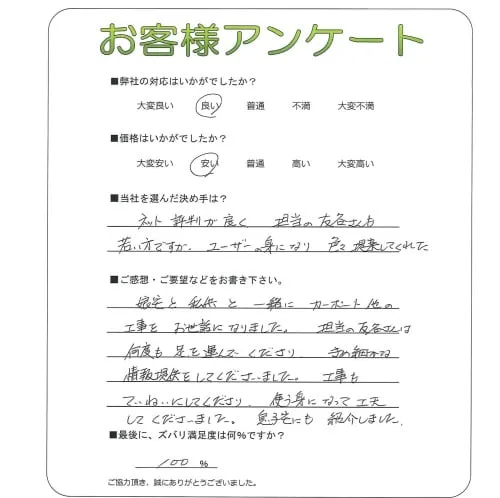 お客様アンケート
■弊社の対応はいかがでしたか?
大変良い 良い 普通 不満 大変不満
■価格はいかがでしたか?
大変安い 安い 普通 高い 大変高い
■当社を選んだ決め手は?
ネット評判が良く、担当の友谷さんも
若い方ですが、ユーザーの身になり 色々提案してくれた
■ご感想・ご要望などをお書き下さい。
娘宅と私供と一緒にカーポート他の
工事をお世話になりました。担当の友谷さんは
何度も足を運んでくださり、きめ細かな
情報提供をしてくださいました。工事も
ていねいにしてくださり、使う身になって工夫
してくださいました。息子宅にも紹介しました。
■最後に、ズバリ満足度は何%ですか?
100 %
ご協力頂き、誠にありがとうございました。